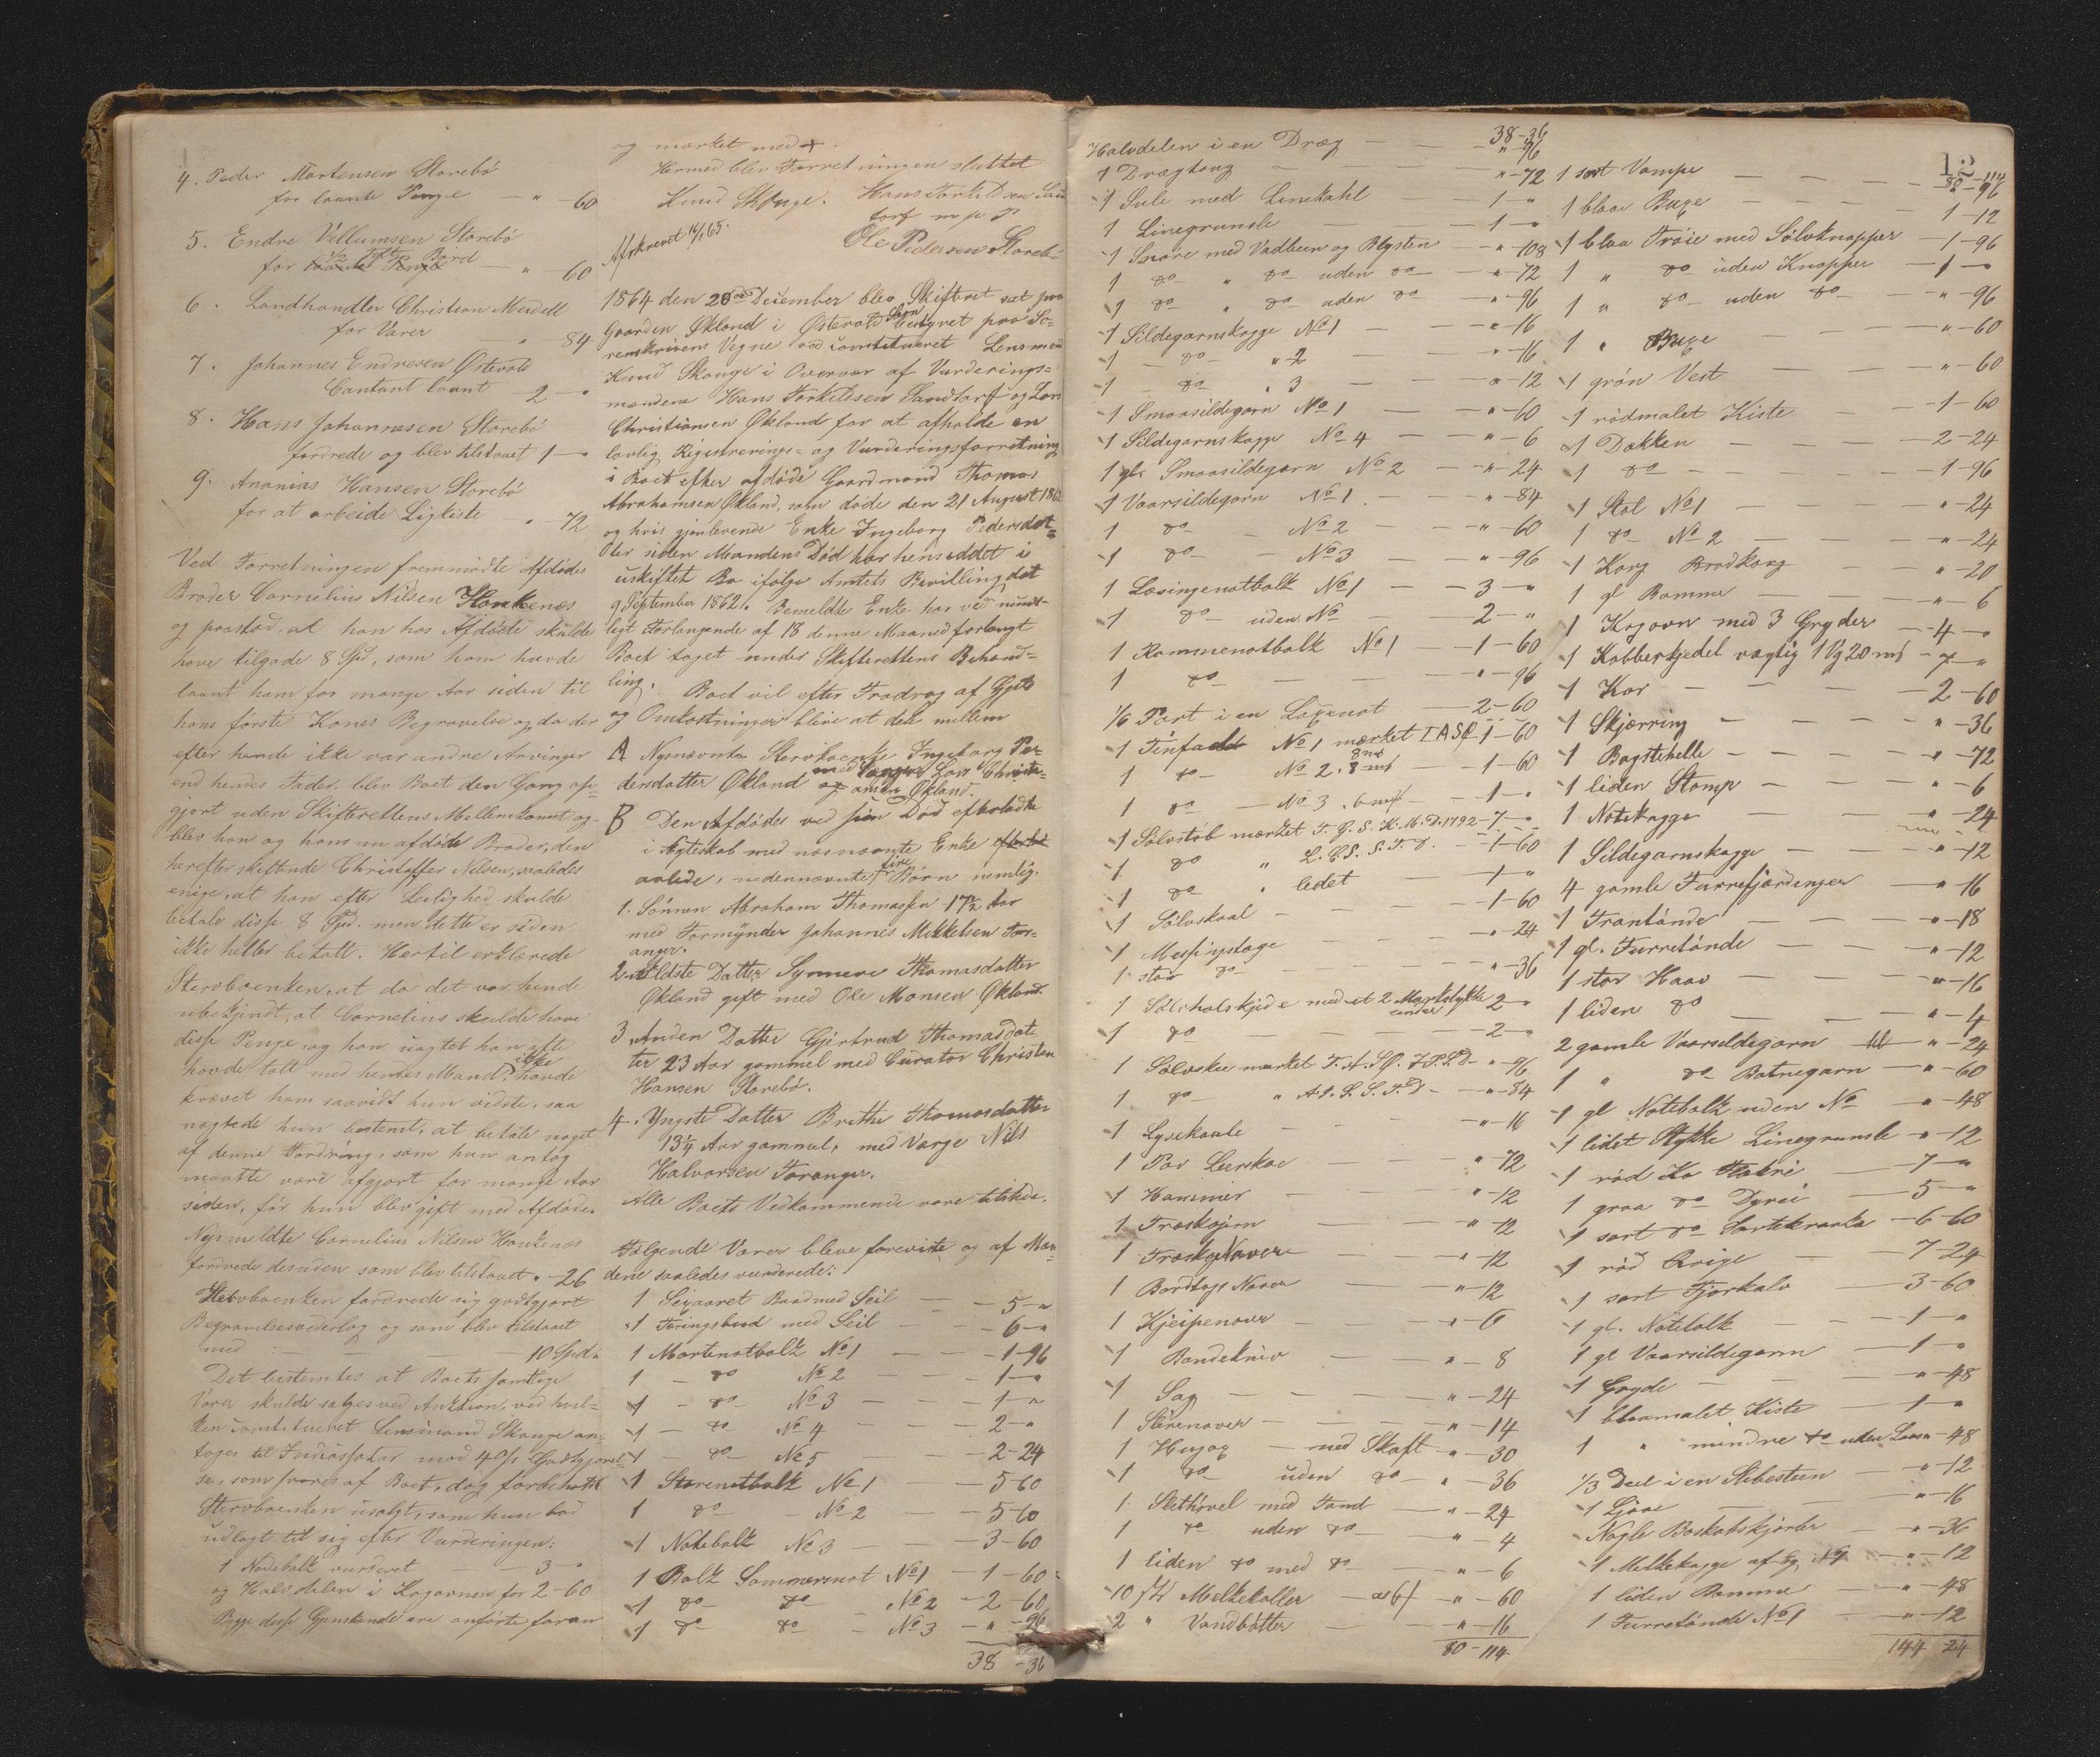 4. Peder Mortensen Storebö
for laante Penge — " 60
5. Endre Villumsen Storebö
for 1/2 Tylt Bord — " 60
6. Landhandler Christian Meidell
for Varer " 84
7. Johannes Endresen Östevold
Contant laant 2 — "
8. Hans Johannesen Storebö
fordrede og blev tilstaaet 1 — "
9. Ananias Hansen Storebö
for at arbeide Ligkiste " 72
Ved Forretningen fremmödte Afdödes
Broder Cornelius Nilsen Haukenæs
og paastod, at han hos Afdöde skulde
have tilgode 8 Spd, som ham havde
laant ham for mange Aar siden til
hans förste Kones Begravelse og da der
efter hende ikke var andre Arvinger
end hendes Fader, blev Boet den Gang op-
gjort uden Skifterettens Mellemkomst og
blev han og hans nu afdöde Broder, den
herefter skiftende Christoffer Nilsen, saaledes
enige, at han efter Leilighed skulde
betale disse 8 Spd. men dette er siden
ikke heller betalt. Hertil erklærede
Stervboenken, at da det var hende
ubekjendt, at Cornelius skulde have
disse Penge, og han uagtet han ofte
havde talt med hendes Mand, ikke havde
krævet ham saavidt hun vidste, saa
nægtede hun bestemt, at betale noget
af denne Fordring, som hun antog
maatte være afgjort for mange Aar
siden, för hun blev gift med Afdöde.
Nysmeldte Cornelius Nilsen Haukenæs
fordrede desuden som blev tilstaaet " - 26
Stervboenken fordrede sig godtgjort
Begravelsesvederlag og som blev tilstaaet
med : — — — 10 Spd "
Det bestemtes at Boets samtlige
Varer skulde sælges ved Auktion, ved hvil-
ken constitueret Lensmand Skauge an-
toges til Incassator mod 4 0/0 Godtgjörel-
se, som svares af Boet, dog forbeholdt
Stervboenken usolgt, som hun bad
udlagt til sig efter Vurderingen:
1 Notebolk vurderet — 3 — "
og Halvdelen i Kogovnen for 2-60
Begge disse Gjenstande ere anförte foran
og mærket med +.
Hermed blev Forretningen sluttet
Knud Skauge. Hans Torkildsen San
torf m p P
Ole Pedersen Storebö
Afskrevet 16/1 65.
1864 den 20de December blev Skifteret sat paa
Gaarden Økland i Østevold Sogn bestyret paa So-
renskrivers Vegne ved constitueret Lensmand
Knud Skauge i Overvær af Vurderings-
mændene Hans Torkildsen Sandtorf og Lars
Christiansen Økland for at afholde en
lovlig Registrerings- og Vurderingsforretning
i Boet efter afdöde Gaardmand Thomas
Abrahamsen Økland, som döde den 21 August 1862
og hvis gjenlevende Enke Ingeborg Pedersdat-
ter siden Mandens Död har hensiddet i
uskiftet Bo ifölge Amtets Bevilling dat
9 September 1862. Bemeldte Enke har ved mundt-
ligt Forlangende af 18 denne Maaned forlangt
Boet taget under Skifterettens Behand-
ling. Boet vil efter Fradrag af Gjeld
og Omkostninger blive at dele mellem
A Nysnævnte Stervboenke Ingeborg Pe-
dersdatter Økland med Laugværge Lars Christi-
ansen Økland.
B Den Afdödes ved sin Död efterladte
i Ægteskab med næstnævnte Enke
avlede, nedennævnte fire Börn nemlig:
1. Sönnen Abraham Thomassen 17 1/2 Aar
med Formynder Johannes Mikkelsen For-
anger.
2. Ældste Datter Synneve Thomasdatter
Økland gift med Ole Monsen Økland.
3. Anden Datter Gjertrud Thomasdat-
ter 23 Aar gammel med Curator Christen
Hansen Storebö.
4. Yngste Datter Brithe Thomasdatter
13 1/4 Aar gammel, med Værge Nils
Halvorsen Foranger.
Alle Boets Vedkommende vare tilstede.
Fölgende Varer bleve foreviste og af Mæn-
dene saaledes vurderede:
1 Sexaaret Baad med Seil — 5 — "
1 Færingsbaad med Seil — 6 — "
1 Mortenotbolk No 1 — 1-96
1 — do No 2 — 1 — "
1 — do No 3 — 1 — "
1 — do No 4 — 2 — "
1 — do No 5 — 2-24
1 Storenotbolk No 1 — 5-60
1 do — No 2 — 5-60
1 Notebolk No 3 — 3-60
1 Bolk Sommernot No 1 — 1-60
1 do do No 2 — 2-60
1 do do — No 3 — " - 96
38 - 36
38-36
Halvdelen i en Dræg — " - 96
1 Drægtoug — " - 72
1 Sule med Linekahl — 1 — "
1 Linegrunsle — 1 — "
1 Snöre med Vadbeen og Blysten — " - 108
1 do " do uden do — " - 72
1 do " do uden do — " - 96
1 Sildegarnskagge No 1 — " - 16
1 — do — " 2 — " - 16
1 do " 3 — " - 12
1 Smaasildegarn No 1 — " - 60
1 Sildegarnskagge No 4 — " - 6
1 gl. Smaasildegarn No 2 — " - 24
1 Vaarsildegarn No 1 — " - 84
1 do — No 2 — " - 60
1 do — No 3 — " - 96
1 Læsingenotbolk No 1 — 3 — "
1 do — uden No — 2 — "
1 Rammenotbolk No 1 — 1-60
1 do — " - 96
1/6 Part i en Laxenot — 2-60
1 Tinfad No 1 mærket T A S Ø 1-60
1 do — No 2, 8 mk — 1-60
1 do — No 3, 6 mk — 1 — "
1 Sölvstöb mærket T. G. S. K. M. D. 1792 - 7 — "
1 do " L. C. S. S. T. D. — 1-60
1 do " ledet — 1 — "
1 Sölvskaal — 1-60
1 Messingstage — " - 24
1 stor do — " - 36
1 Sölvhalskjede med et 2 Markstykke under 2 — "
1 do — 2 — "
1 Sölvskee mærket T. A. S. Ø. I. P. S. D. — " - 96
1 do — " A. I. S. S. T. D — " - 84
1 Lysekaale — " - 16
1 Par Leerskoe — " - 72
1 Hammer — " - 12
1 Træskojern — " - 12
1 TræskoNaver — " - 12
1 Bordtags Naver — " - 12
1 Kjeipenaver — " - 6
1 Bandekniv — " - 8
1 Sag — " - 24
1 Stærenaver — " - 14
1 Hugøx — med Skaft — " - 30
1 do — uden do — " - 36
1 Slethövel med Tand — " - 24
1 do uden do — " - 4
1 liden do med do — " - 6
10 stk Melkekoller — a 6 s — " - 60
2 " Vandbötter — " - 16
80 - 114
12
80 - 114
1 sort Vampe — " - 96
1 blaae Buxe — 1-12
1 blaa Tröie med Sölvknapper — 1-96
1 " do uden Knapper — 1 — "
1 " do — uden do — " - 96
1 " Buxe — " - 60
1 grön Vest — " - 60
1 rödmalet Kiste — 1-60
1 Dækken — 2-24
1 do — 1-96
1 Stol No 1 — " - 24
1 do No 2 — " - 24
1 Korg Brodkorg — " - 20
1 gl Bomme — " - 6
1 Kogovn med 3 Gryder — 4 — "
1 Kobberkjedel vægtig 1 Vg 20 mk - 7 — "
1 Kar — 2-60
1 Skjærring — " - 36
1 Bagstehelle — " - 72
1 liden Stamp — " - 6
1 Notekagge — " - 24
1 Sildegarnskagge — " - 12
4 gamle Turrefjærdinger — " - 16
1 Trantönde — " - 18
1 gl. Turretönde — " - 12
1 stor Haav — " - 16
1 liden do — " - 4
2 gamle Vaarsildegarn — " - 24
1 " do Botnegarn — " - 60
1 gl Notebolk uden No — " - 48
1 lidet Stykke Linegrunsle — " - 12
1 röd Ko Stakre — 7 — "
1 graa do Dyrei — 5 — "
1 sort do Sortekraaka — 6-60
1 röd Qvige — 7-24
1 sort Fjorkalv — 3-60
1 gl. Notebolk — 1 — "
1 gl Vaarsildegarn — 1 — "
1 Gryde — " - 48
1 blaamalet Kiste — 1 — "
1 " mindre do uden Laas " - 48
1/3 Deel i en Slibesteen — " - 12
1 Ljaae — " - 16
Nogle Boskabskjörler — " - 36
1 Melkekagge — " - 12
1 liden Bomme — " - 48
1 Turretönde No 1 — " - 12
144 24